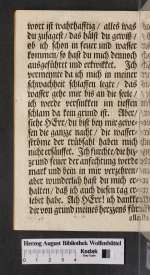 wort ist wahrhafftig / alles was
du zusagest / das hälst du gewiß /
ob ich schon in feuer und wasser
kommen / so hast du mich dennoch
ausgeführet und erquicket. Ich
vermeynte da ich mich in meiner
schwachheit schlaffen legte / das
wasser gehe mir bis an die seele /
ich werde versincken im tieffen
schlam da kein grund ist. Aber
siehe HErr / du bist bey mir gewe-
sen die gantze nacht / die wasser-
ströhme der trübsahl haben mich
nicht ersäuffet. Ich furchte, die
grund feuer der anfechtung werde
marck und bein in mir verzehren /
aber wunderlich hast du mich er-
halten / daß ich auch diesen tag er-
lebet habe. Ach HErr! ich dancke
dir von grund meines hertzens für
Herzog August Bibliothek Wolfenbüttel
Kodak
Color